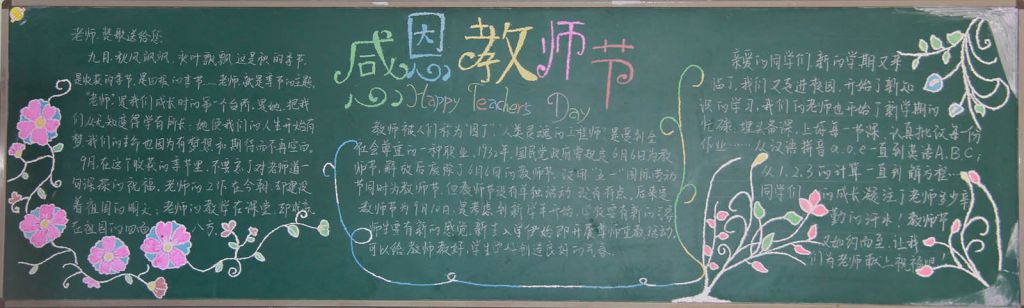 感恩教师节
Happy Teachers Day
老师,赞歌送给您
九月,秋风飒飒,黄叶飘飘,这是秋的季节,
是收获的季节,是回报的季节,老师就是季节的主题。
"老师"是我们成长时的第一个台阶,是她,把我
们从无知变得学有所长;她使我们的人生开始有
梦,我们的青春也因为有梦想和期待而不再空白。
9月,在这个收获的季节里,不要忘了对老师道一
句深深的祝福。老师的工作在今朝,却建设
着祖国的明天;老师的教学在课堂,却成就
在祖国的四面八方。
教师被人们称为"园丁""人类灵魂的工程师",是受到全
社会尊重的一种职业。1932年,国民党政府曾规定6月6日为教
师节,解放后废除了6月6日的教师节,改用"五一"国际劳动
节同时为教师节,但教师节没有单独活动,没有特点,后来定
教师节为9月10日,是考虑到新学年开始,学校要有新的
师生要有新的感觉,新生入学伊始,即开展尊师重教活动,
可以给教师教好、学生学好创造良好的气氛。
亲爱的同学们,新的学期又来
临了,我们又走进校园,开始了新知
识的学习,我们的老师也开始了新学期的
忙碌,埋头备课,上好每一节课,认真批改每一份
作业……从汉语拼音a.o.e一直到英语A.B.C;
从1.2.3的计算一直到解方程……
同学们 的成长凝注了老师多少辛
勤的汗水!教师节
又如期而至,让我
们为老师献上祝福吧!